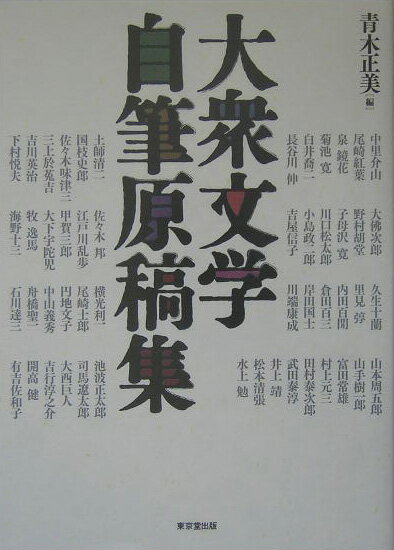 青木正美[編]
大衆文学
自筆原稿集
中里介山
尾崎紅葉
泉 鏡花
菊池 寛
白井喬二
長谷川 伸
土師清二
国枝史郎
佐々木味津三
三上於菟吉
吉川英治
下村悦夫
大佛次郎
野村胡堂
子母沢 寛
川口松太郎
小島政二郎
吉屋信子
佐々木 邦
江戸川乱歩
甲賀三郎
大下宇陀児
牧 逸馬
海野十三
久生十蘭
里見 弴
内田百閒
倉田百三
岸田国士
川端康成
横光利一
尾崎士郎
円地文子
中山義秀
舟橋聖一
石川達三
山本周五郎
山手樹一郎
富田常雄
村上元三
田村泰次郎
武田泰淳
井上 靖
松本清張
水上 勉
池波正太郎
司馬遼太郎
大西巨人
吉行淳之介
開高 健
有吉佐和子
東京堂出版